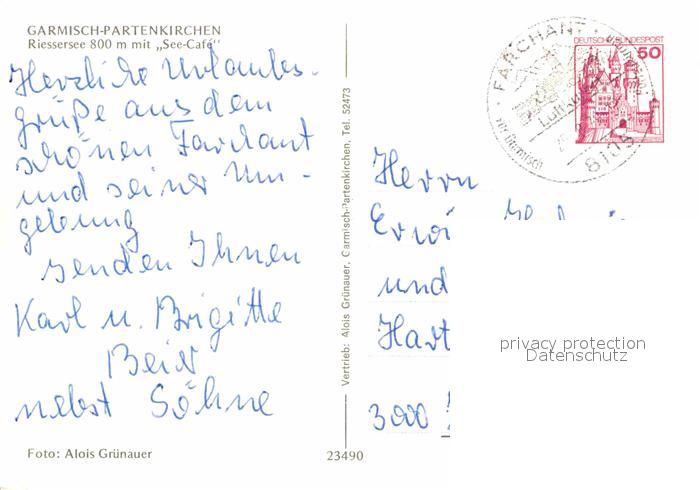 GARMISCH-PARTENKIRCHEN
Riessersee 800 m mit „See-Café"
Herzliche Urlaubs-
grüße aus dem
schönen Farchant
und seiner Um-
gebung
senden Ihnen
Karl u. Brigitte
nebst Söhne
Foto: Alois Grünauer
23490
Vertrieb: Alois Grünauer, Garmisch-Partenkirchen, Tel. 52473
FARCHANT
8105
DEUTSCHE BUNDESPOST
50
Herrn
Erwi
und
Hart
privacy protection
Datenschutz